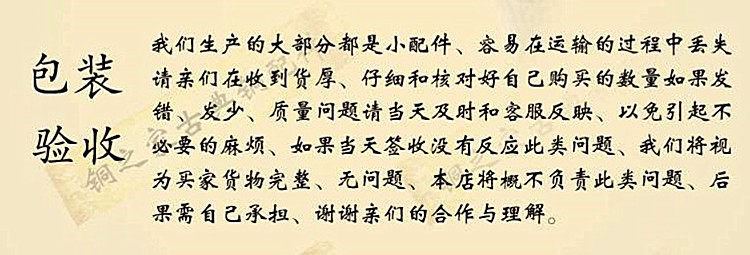 包装
验收
我们生产的大部分都是小配件、容易在运输的过程中丢失
请亲们在收到货厚、仔细和核对好自己购买的数量如果发
错、发少、质量问题请当天及时和客服反映、以免引起不
必要的麻烦、如果当天签收没有反应此类问题、我们将视
为买家货物完整、无问题、本店将概不负责此类问题、后
果需自己承担、谢谢亲们的合作与理解。